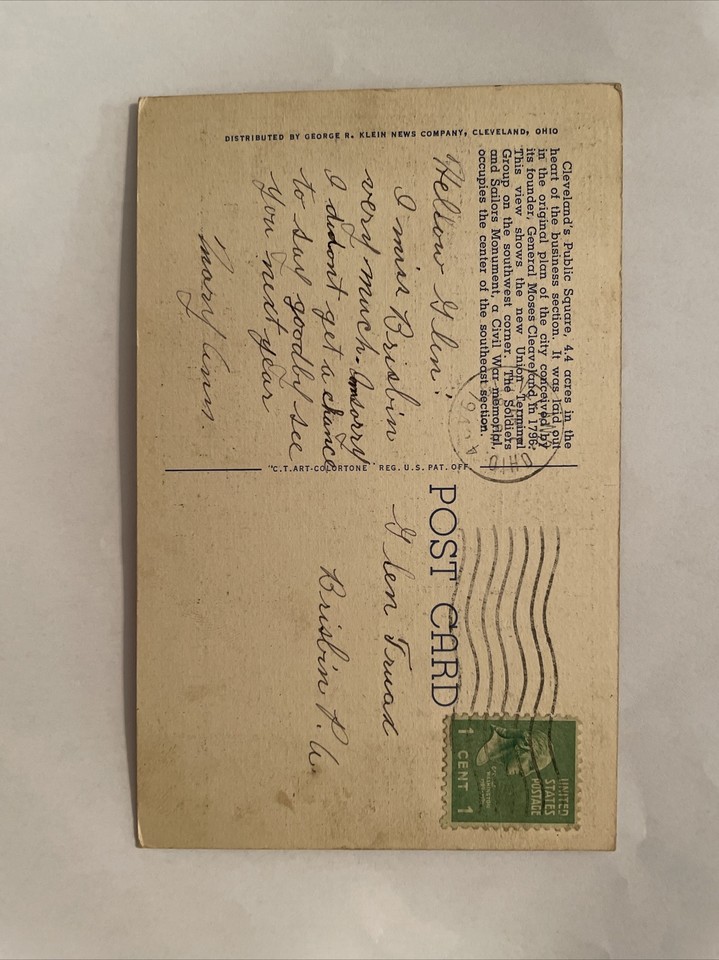 DISTRIBUTED BY GEORGE R. KLEIN NEWS COMPANY, CLEVELAND, OHIO
Cleveland's Public Square, 4.4 acres in the
heart of the business section. It was laid out
in the original plan of the city conceived by
its founder, General Moses Cleaveland in 1796.
This view shows the new Union Terminal
Group on the southwest corner. The Soldiers
and Sailors Monument, a Civil War memorial,
occupies the center of the southeast section.
Hellow Glen!
I miss Brisbin
very much. Imsorry
I didont get a chance
to say goodby see
you next year
Mary Ann.
"C.T. ART-COLORTONE" REG. U.S. PAT. OFF.
POST CARD
Glen Truax
Brisbin P.A.
OHIO
UNITED
STATES
POSTAGE
1 CENT 1